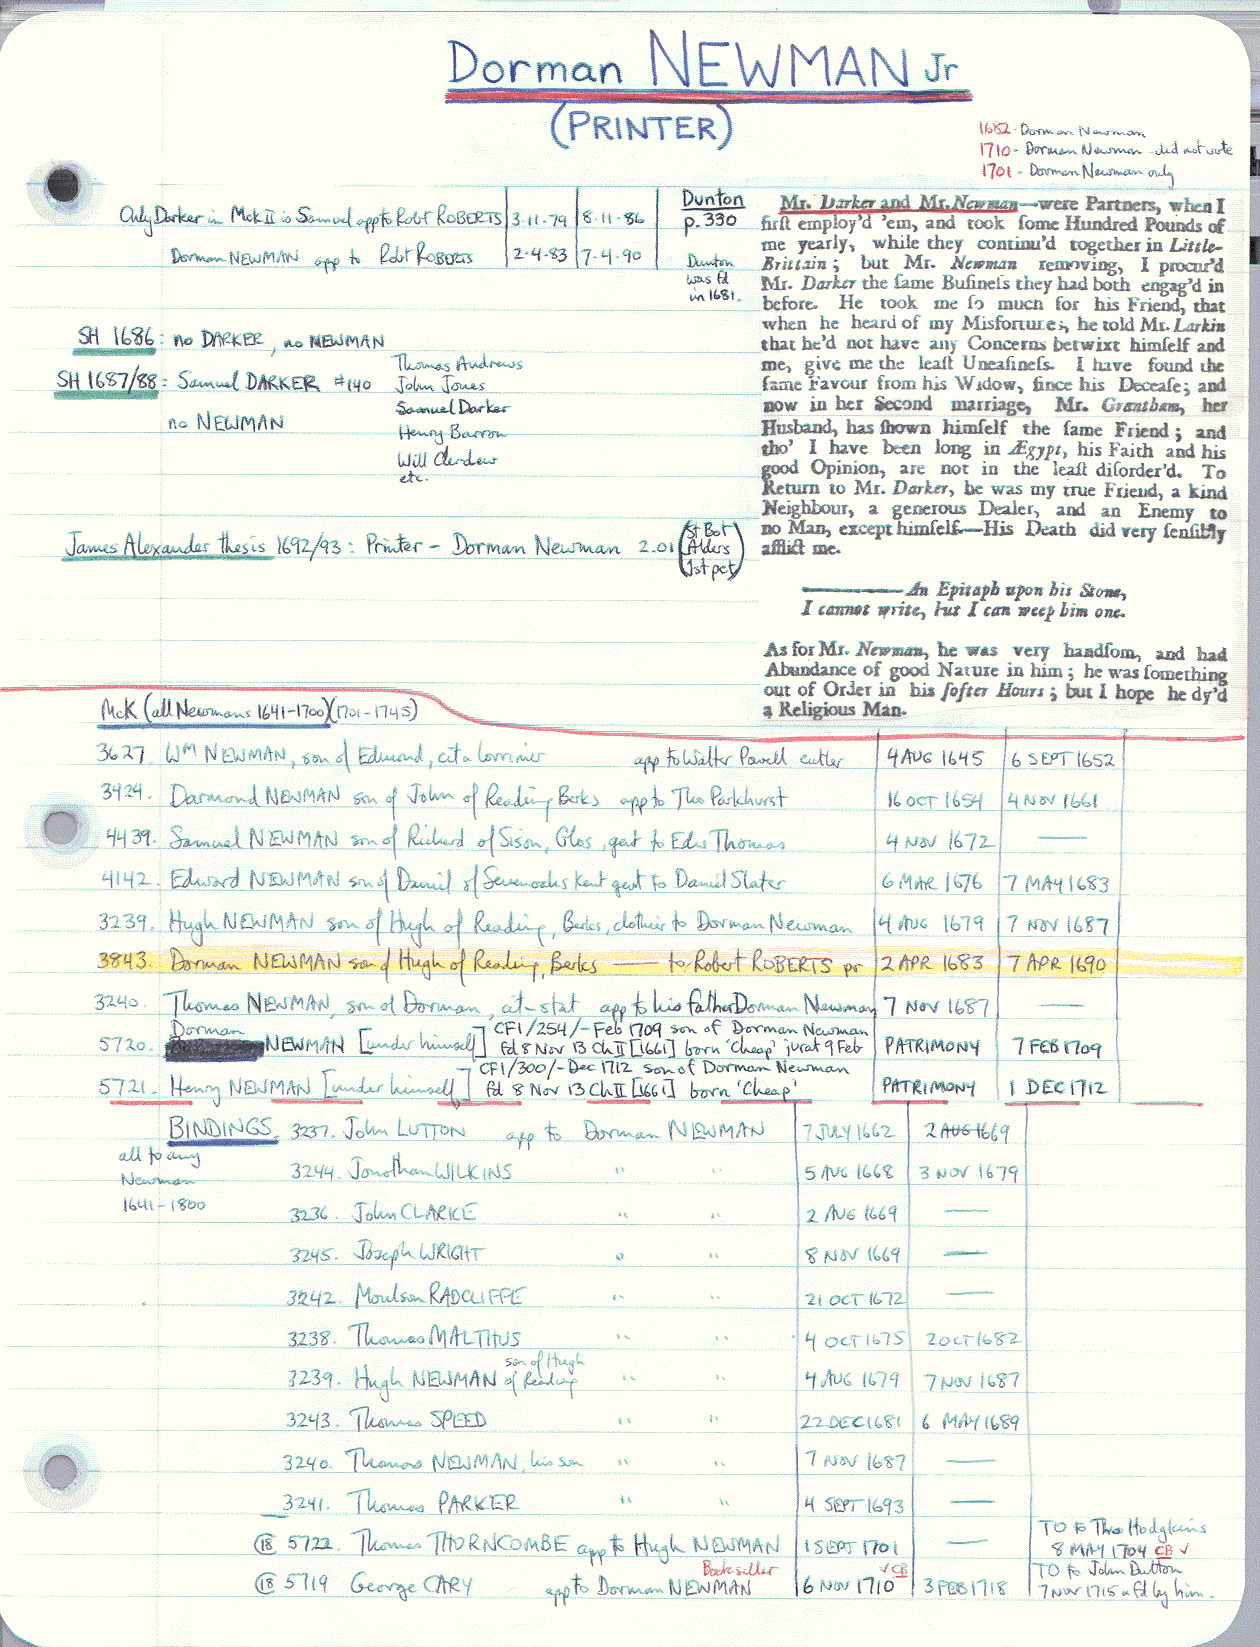 Dorman NEWMAN Jr
(PRINTER)
1682 - Dorman Newman
1710 - Dorman Newman - did not vote
1701 - Dorman Newman only
Only Darker in McK II is Samuel app to Robt ROBERTS 3-11-79 8-11-86
Dorman NEWMAN app to Robt ROBERTS 2-4-83 7-4-90
Dunton
p. 330
Dunton
was fd
in 1681.
SH 1686: no DARKER, no NEWMAN
SH 1687/88: Samuel DARKER #140
no NEWMAN
Thomas Andrews
John Jones
Samuel Darker
Henry Barron
Will
etc.
James Alexander thesis 1692/93: Printer - Dorman Newman 2.01 (St Bot
Alders
1st pct)
Mr. Darker and Mr. Newman—were Partners, when I
firſt employ'd 'em, and took ſome Hundred Pounds of
me yearly, while they continu'd together in Little-
Brittain; but Mr. Newman removing, I procur'd
Mr. Darker the ſame Buſineſs they had both engag'd in
before. He took me ſo much for his Friend, that
when he heard of my Misfortune, he told Mr. Larkin
that he'd not have any Concerns betwixt himſelf and
me, give me the leaſt Uneaſineſs. I have found the
ſame Favour from his Widow, ſince his Deceaſe; and
now in her Second marriage, Mr. Grantham, her
Husband, has ſhown himſelf the ſame Friend; and
tho' I have been long in Ægypt, his Faith and his
good Opinion, are not in the leaſt diſorder'd. To
Return to Mr. Darker, he was my true Friend, a kind
Neighbour, a generous Dealer, and an Enemy to
no Man, except himſelf.—His Death did very ſenſibly
afflict me.
——— An Epitaph upon his Stone,
I cannot write, but I can weep him one.
As for Mr. Newman, he was very handſom, and had
Abundance of good Nature in him; he was ſomething
out of Order in his ſofter Hours; but I hope he dy'd
a Religious Man.
McK (all Newmans 1641-1700)(1701-1745)
3627. Wm NEWMAN, son of Edmund, cit & lorriner app to Walter Powell cutler 4 AUG 1645 6 SEPT 1652
3424. Darmond NEWMAN son of John of Reading Berks app to Tho Parkhurst 16 OCT 1654 4 NOV 1661
4439. Samuel NEWMAN son of Richard of Sison, Glos, gent to Edw Thomas 4 NOV 1672 ——
4142. Edward NEWMAN son of Daniel of Sevenoaks Kent gent to Daniel Slater 6 MAR 1676 7 MAY 1683
3239. Hugh NEWMAN son of Hugh of Reading, Berks, clothier to Dorman Newman 4 AUG 1679 7 NOV 1687
3843. Dorman NEWMAN son of Hugh of Reading, Berks —— to Robert ROBERTS pr 2 APR 1683 7 APR 1690
3240. Thomas NEWMAN, son of Dorman, cit-stat app to his father Dorman Newman 7 NOV 1687 ——
5720. Dorman NEWMAN [under himself] CF1/254/-Feb 1709 son of Dorman Newman
fd 8 Nov 13 Ch II [1661] born 'Cheap' jurat 9 Feb PATRIMONY 7 FEB 1709
5721. Henry NEWMAN [under himself] CF1/300/-Dec 1712 son of Dorman Newman
fd 8 Nov 13 Ch II [1661] born 'Cheap' PATRIMONY 1 DEC 1712
BINDINGS
all to any
Newman
1641-1800
3237. John LUTTON app to Dorman NEWMAN 7 JULY 1662 2 AUG 1669
3244. Jonathan WILKINS " " 5 AUG 1668 3 NOV 1679
3236. John CLARKE " " 2 AUG 1669 ——
3245. Joseph WRIGHT " " 8 NOV 1669 ——
3242. Moulson RADCLIFFE " " 21 OCT 1672 ——
3238. Thomas MALTHUS " " 4 OCT 1675 2 OCT 1682
3239. Hugh NEWMAN son of Hugh of Reading " " 4 AUG 1679 7 NOV 1687
3243. Thomas SPEED " " 22 DEC 1681 6 MAY 1689
3240. Thomas NEWMAN, his son " " 7 NOV 1687 ——
3241. Thomas PARKER " " 4 SEPT 1693 ——
(18) 5722. Thomas THORNCOMBE app to Hugh NEWMAN 1 SEPT 1701 —— TO to Tho Hodgkins
8 MAY 1704 CB ✓
(18) 5719 George CARY app to Dorman NEWMAN Bookseller 6 NOV 1710 ✓ CB 3 FEB 1718 TO to John Dutton
7 NOV 1715 & fd by him.